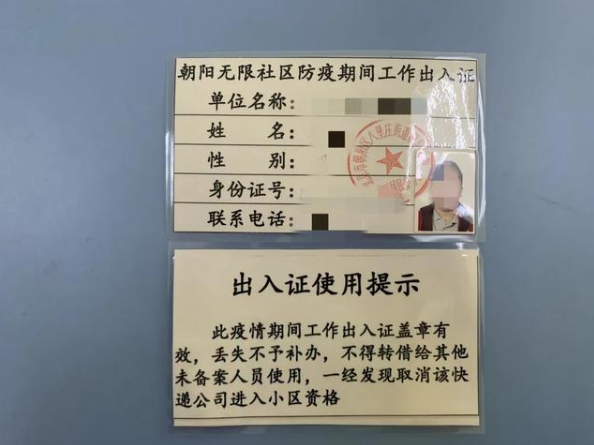 朝阳无限社区防疫期间工作出入证
单位名称：
姓 名：
性 别：
身份证号：
联系电话：
出入证使用提示
此疫情期间工作出入证盖章有
效，丢失不予补办，不得转借给其他
未备案人员使用，一经发现取消该快
递公司进入小区资格